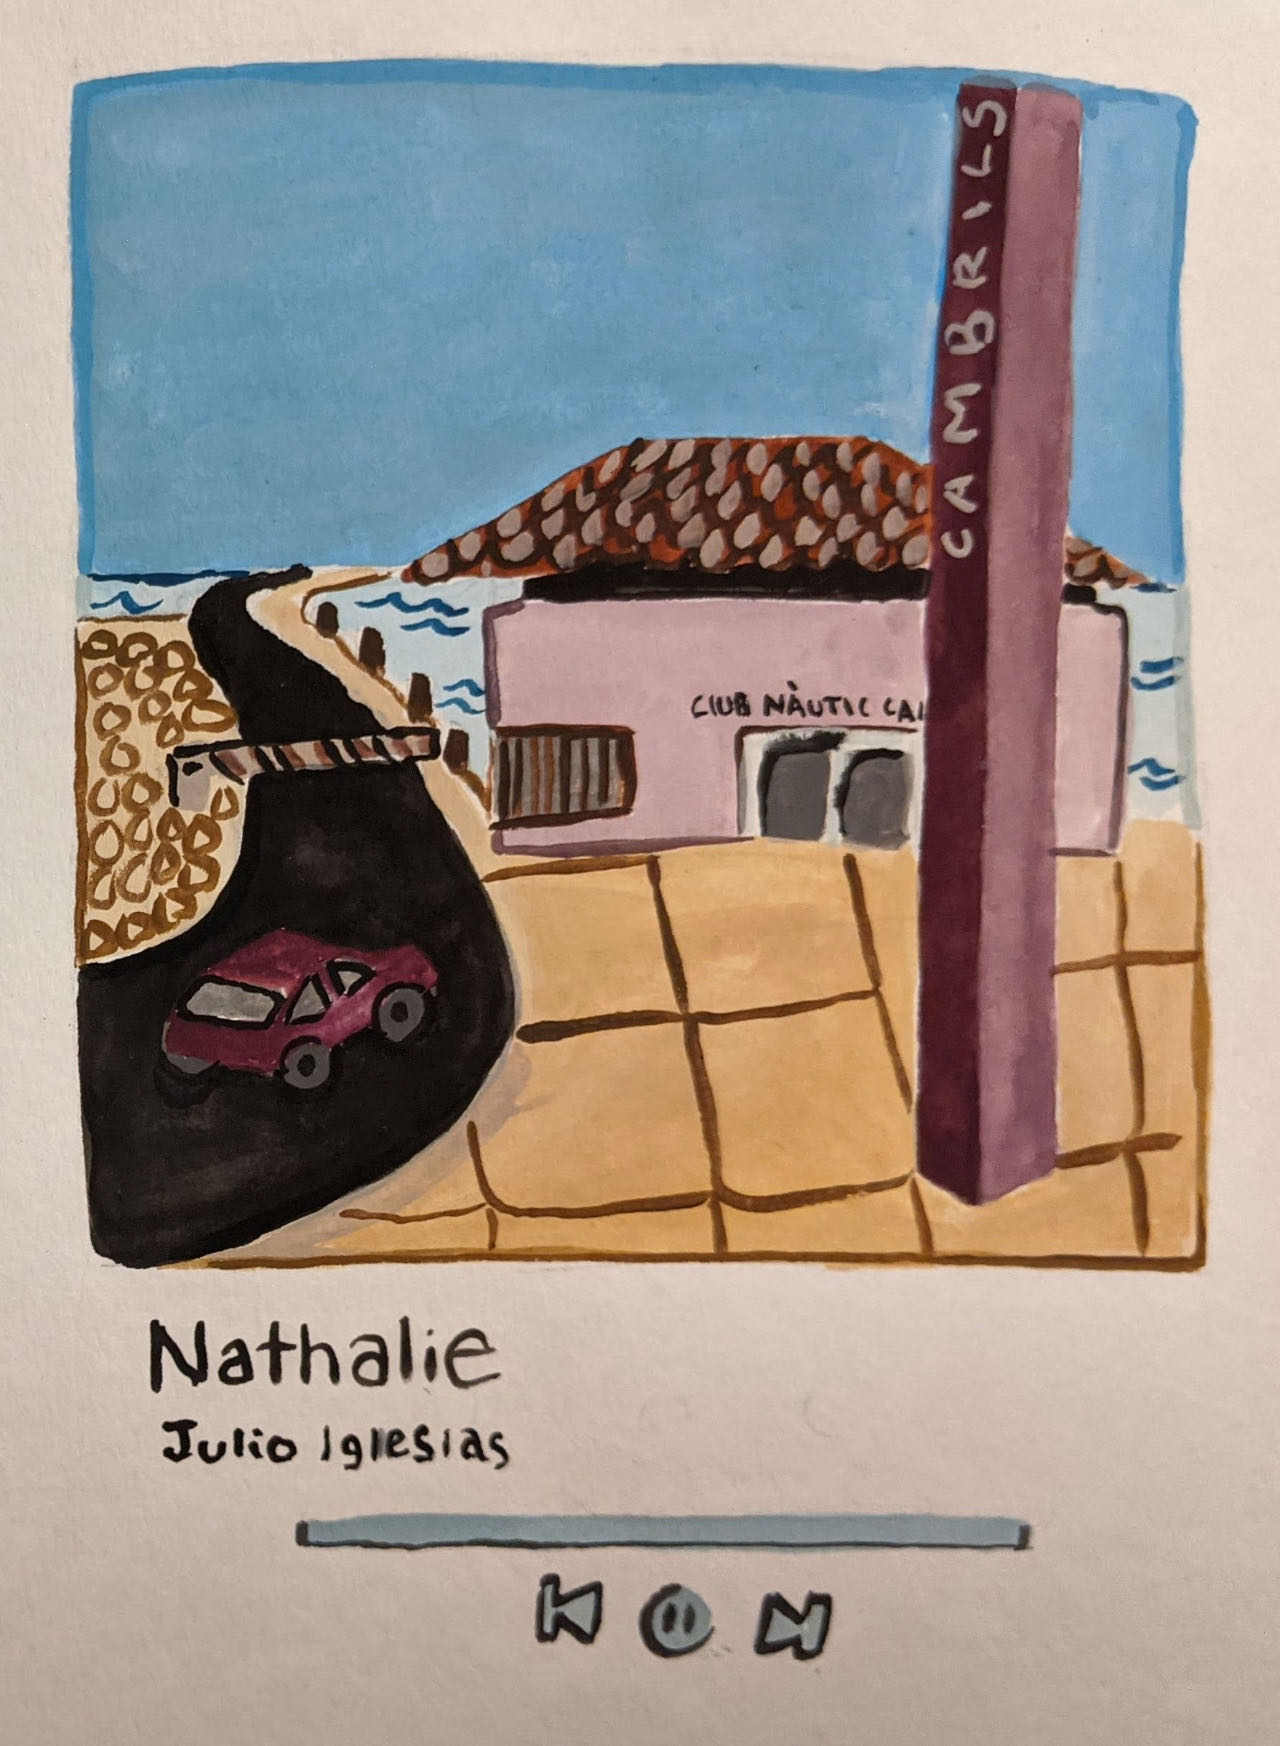 CAMBRILS
CLUB NÀUTIC CA
Nathalie
Julio Iglesias